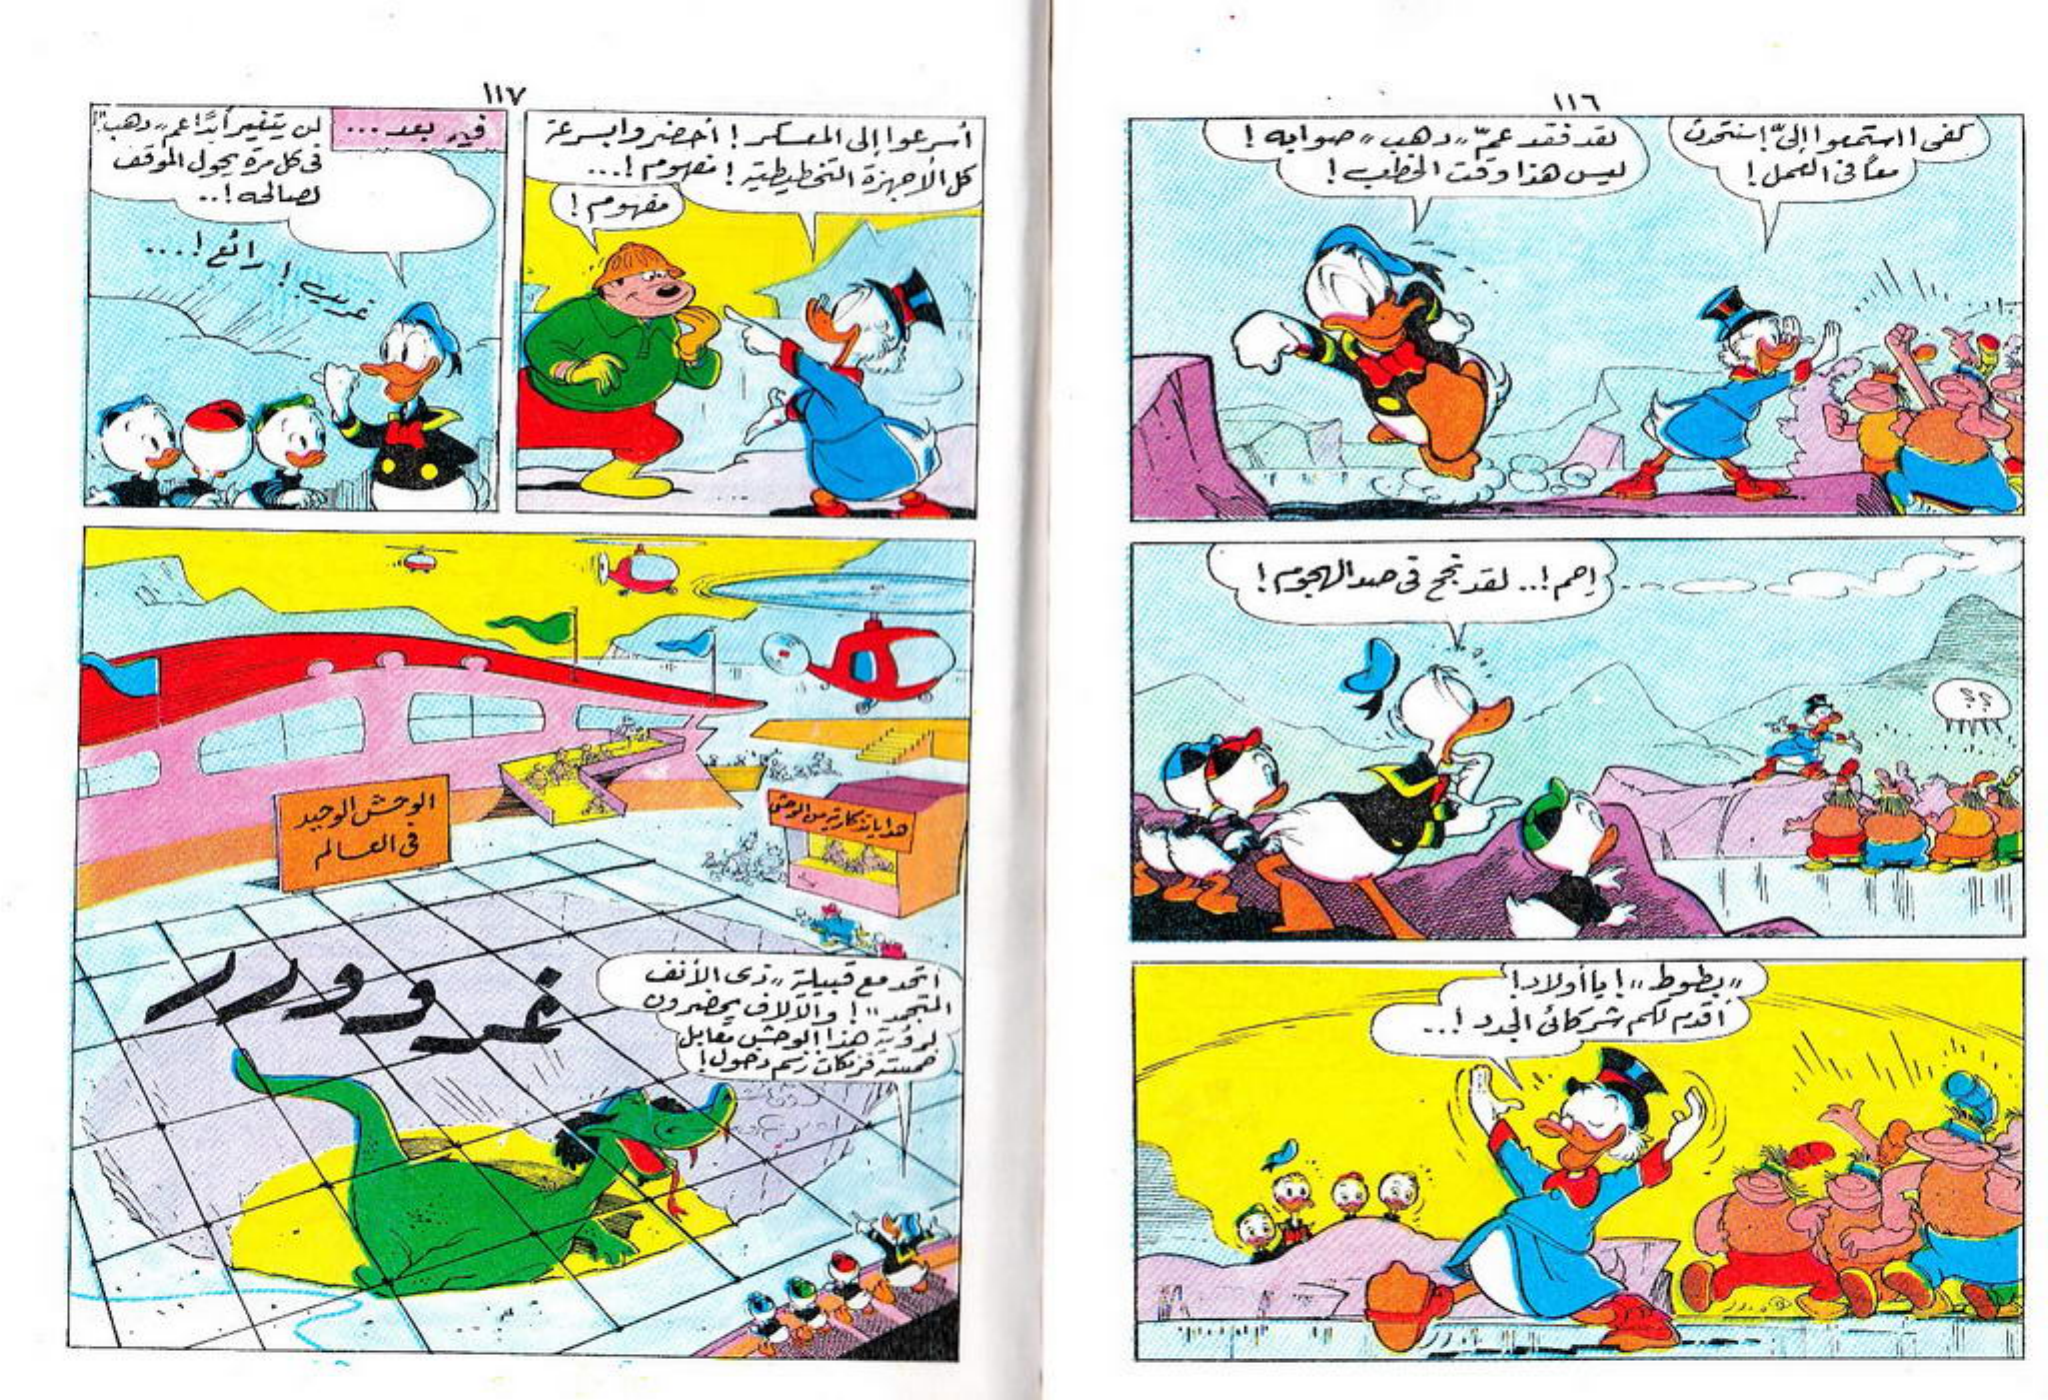 ١١٦
كفى ! استمعوا إلىّ ! سنتحدث
معاً فى العمل !
لقد فقد عمّ „دهب" صوابه !
ليس هذا وقت الخطب !
إحم !.. لقد نجح فى صد الهجوم !
؟؟
„بطوط" ! يا أولاد !
أقدم لكم شركائى الجدد !..
١١٧
أسرعوا إلى المعسكر ! أحضروا بسرعة
كل الأجهزة التخطيطية ! مفهوم !...
مفهوم !
فيما بعد ...
لن يتغير أبداً عم „دهب" !
فى كل مرة يحول الموقف
لصالحه !..
غريب ! رائع !...
الوحش الوحيد
فى العالم
هدايا تذكارية من الوحش
اتحد مع قبيلة „ذى الأنف
المتجمد" ! والآلاف يحضرون
لرؤية هذا الوحش مقابل
خمسة فرنكات رسم دخول !
غرووررر